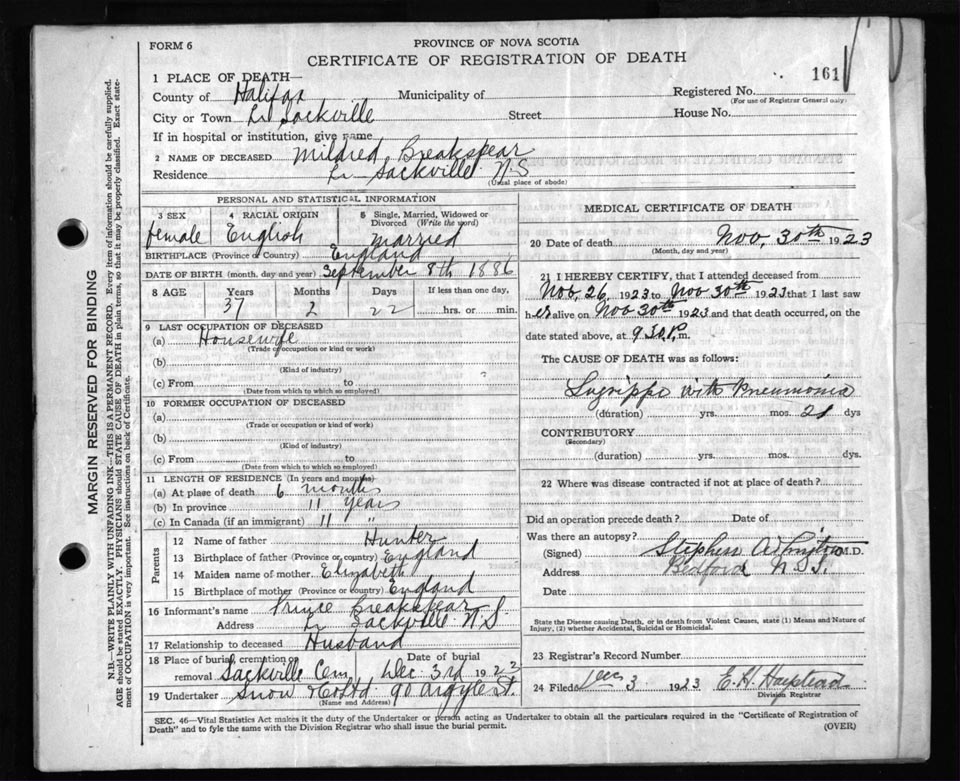 FORM 6
PROVINCE OF NOVA SCOTIA
CERTIFICATE OF REGISTRATION OF DEATH
161
1 PLACE OF DEATH—
County of Halifax Municipality of Registered No.
(For use of Registrar General only)
City or Town Lr Sackville Street House No.
If in hospital or institution, give name
2 NAME OF DECEASED Mildred Breakspear
Residence Lr Sackville N.S
(Usual place of abode)
PERSONAL AND STATISTICAL INFORMATION
3 SEX 4 RACIAL ORIGIN 5 Single, Married, Widowed or Divorced (Write the word)
female English Married
BIRTHPLACE (Province or Country) England
DATE OF BIRTH (month, day and year) September 8th 1886
8 AGE Years Months Days If less than one day,
37 2 22 hrs. or min.
9 LAST OCCUPATION OF DECEASED
(a) Housewife
(Trade or occupation or kind or work)
(b)
(Kind of industry)
(c) From to
(Date from which to which so employed)
10 FORMER OCCUPATION OF DECEASED
(a)
(Trade or occupation or kind of work)
(b)
(Kind of industry)
(c) From to
(Date from which to which so employed)
11 LENGTH OF RESIDENCE (In years and months)
(a) At place of death 6 months
(b) In province 11 years
(c) In Canada (if an immigrant) 11 "
Parents
12 Name of father Hunter
13 Birthplace of father (Province or country) England
14 Maiden name of mother Elizabeth
15 Birthplace of mother (Province or country) England
16 Informant's name Prince Breakspear
Address Lr Sackville N S
17 Relationship to deceased Husband
18 Place of burial, cremation or removal Sackville Cem Date of burial Dec 3rd 192
19 Undertaker Snow & Co Ltd 90 Argyle St.
(Name and Address)
MEDICAL CERTIFICATE OF DEATH
20 Date of death Nov. 30th 1923
(Month, day and year)
21 I HEREBY CERTIFY, that I attended deceased from
Nov. 26 1923 to Nov 30th 1923 that I last saw
her alive on Nov 30th 1923 and that death occurred, on the
date stated above, at 9 P.m.
The CAUSE OF DEATH was as follows:
Lagrippe with Pneumonia
(duration) yrs. mos. 21 dys
CONTRIBUTORY
(Secondary)
(duration) yrs. mos. dys.
22 Where was disease contracted if not at place of death?
Did an operation precede death? Date of
Was there an autopsy?
(Signed) Stephen M.D.
Address Bedford N.S.
Date
State the Disease causing Death, or in death from Violent Causes, state (1) Means and Nature of
Injury, (2) whether Accidental, Suicidal or Homicidal.
23 Registrar's Record Number
24 Filed Dec 3 1923 E. H.
Division Registrar
SEC. 46—Vital Statistics Act makes it the duty of the Undertaker or person acting as Undertaker to obtain all the particulars required in the "Certificate of Registration of
Death" and to fyle the same with the Division Registrar who shall issue the burial permit. (OVER)
MARGIN RESERVED FOR BINDING
N.B.—WRITE PLAINLY WITH UNFADING INK—THIS IS A PERMANENT RECORD. Every item of information should be carefully supplied.
AGE should be stated EXACTLY. PHYSICIANS should STATE CAUSE OF DEATH in plain terms, so that it may be properly classified. Exact state-
ment of OCCUPATION is very important. See instructions on back of Certificate.